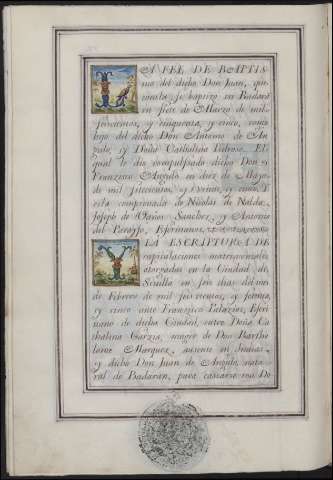 LA FEE DE BAPTIS
mo del dicho Don Juan, que
consta, se baptizo en Badarã
en siete de Marzo de mil
seiscientos, y cinquenta, y cinco, como
hijo del dicho Don Antonio de An
gulo, y Doña Cathalina Pedroso. El
qual le dio compulsado dicho Don
Francisco Angulo en diez de Mayo
de mil, y
esta comprobada de Nicolas de Nalda,
Joseph de Sanchez, y Antonio
del Escrivanos,
LA ESCRIPTURA DE
capitulaciones matrimoniales
otorgadas en la Ciudad de
Sevilla en seis dias del mes
de Febrero de mil seiscientos, y setenta,
y cinco ante Francisco Palazios, Escri
uano de dicha Ciudad, entre Doña Ca
thalina Garzia, muger de Don Bartho
lome Marquez, ausente en Indias,
y dicho Don Juan de Angulo, natu
ral de Badarán, para casarse con Do